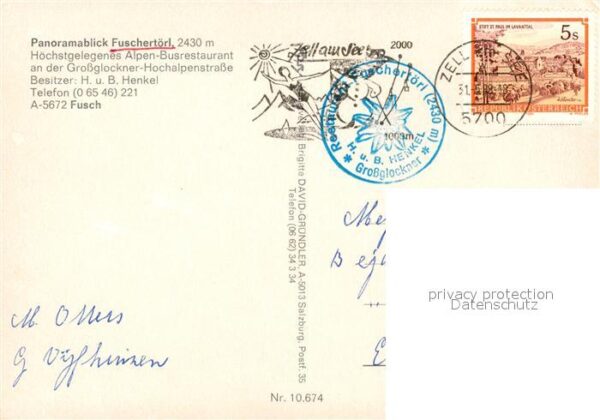 Panoramablick Fuschertörl, 2430 m
Höchstgelegenes Alpen-Busrestaurant
an der Großglockner-Hochalpenstraße
Besitzer: H. u. B. Henkel
Telefon (0 65 46) 221
A-5672 Fusch
Zell am See
2000
1000m
Restaurant Fuschertörl (2430 m)
H. u. B. HENKEL
* Großglockner *
STIFT ST. PAUL IM LAVANTTAL
5 S
REPUBLIK ÖSTERREICH
ZELL AM SEE
5700
Brigitte DAVID-GRÜNDLER, A-5013 Salzburg, Postf. 35
Telefon (06 62) 34 3 34
M.
G
privacy protection
Datenschutz
Nr. 10.674